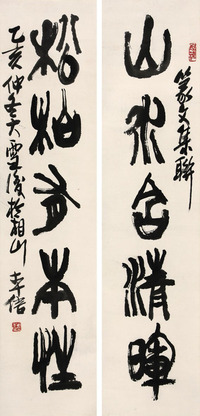 山水含清暉
篆文集聯
松柏有本性
乙亥仲冬大雪後於相山
李倍